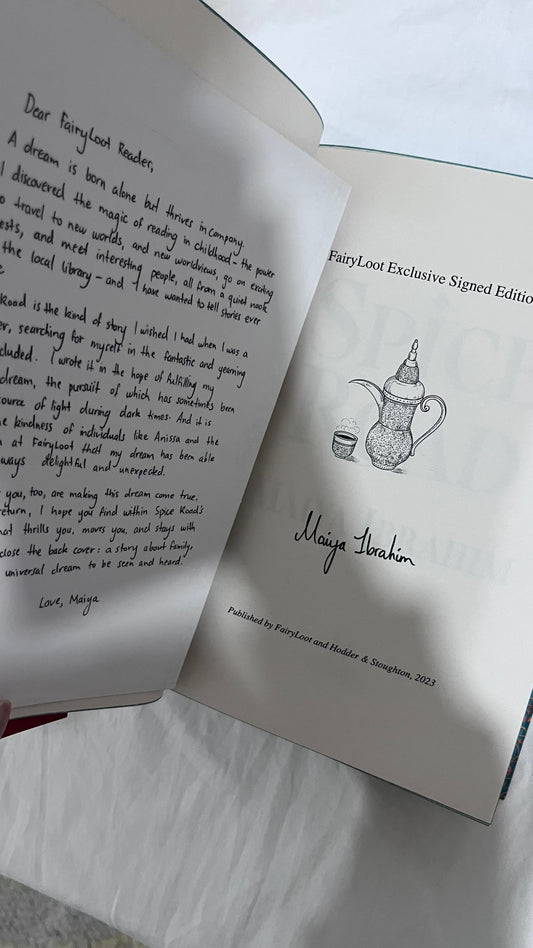 Dear FairyLoot Reader,
A dream is born alone but thrives in company.
I discovered the magic of reading in childhood – the power
to travel to new worlds, and new worldviews, go on exciting
ests, and meet interesting people, all from a quiet nook
the local library – and I have wanted to tell stories ever
Road is the kind of story I wished I had when I was a
er, searching for myself in the fantastic and yearning
cluded. I wrote it in the hope of fulfilling my
dream, the pursuit of which has sometimes been
source of light during dark times. And it is
e kindness of individuals like Anissa and the
at FairyLoot that my dream has been able
ways delightful and unexpected.
you, too, are making this dream come true.
return, I hope you find within Spice Road's
hat thrills you, moves you, and stays with
close the back cover: a story about family,
universal dream to be seen and heard.
Love, Maiya
FairyLoot Exclusive Signed Editio
Maiya Ibrahim
Published by FairyLoot and Hodder & Stoughton, 2023